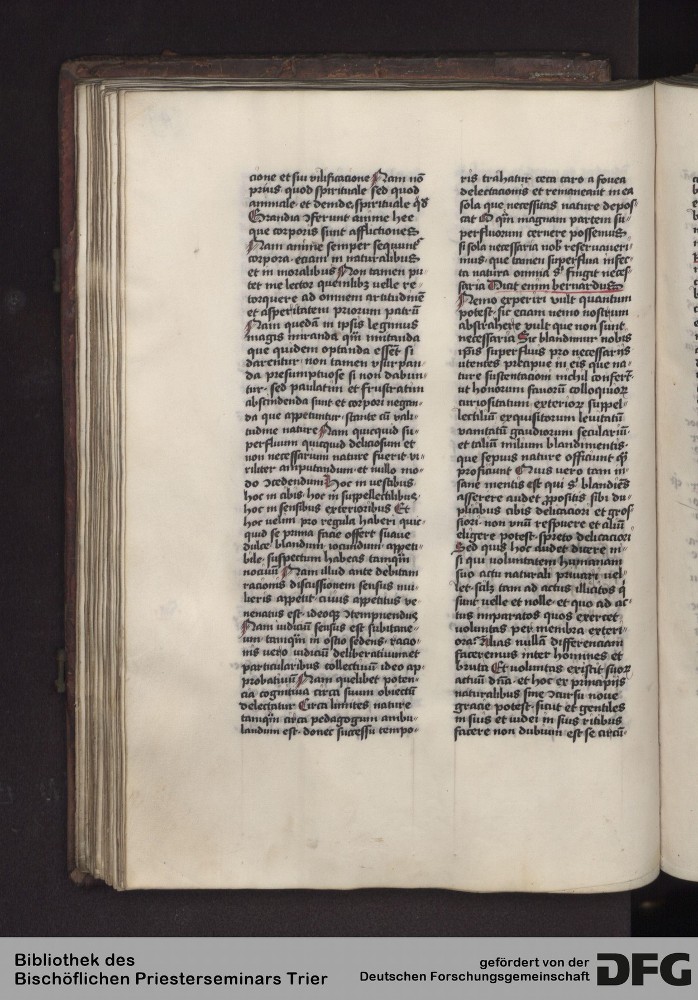 cione et sui vilificacione Nam nō
prius quod spirituale sed quod
animale et deinde spirituale qd̄
Grandia ↄferunt anime hee
que corporis sunt afflictiones
Nam anime semper sequunt᷑
corpora eciam in naturalibus
et in moralibus Non tamen pu
tet me lector quemlibꝫ velle re
torquere ad omnem artitudinē
et asperitatem priorum patrū
Nam quedā in ipsis legimus
magis miranda qm̄ imitanda
que quidem optanda essēt si
darentur non tamen vsurpan
da presumptuose si non dabun
tur sed paulatim et frustratim
abscindenda sunt et corpori negan
da que appetuntur stante cū vali
tudine nature Nam quicquid su
perfluum quicquid deliciosum et
non necessarium nature fuerit vi
riliter amputandum et nullo mo
do ↄcedendum Hoc in vestibus
hoc in cibis hoc in suppellectilibus
hoc in sensibus exterioribus Et
hoc velim pro regula haberi quic
quid se prima facie offert suaue
dulce blandum iocundum appeti
bile suspectum habeas tamqm̄
nociuū Nam illud ante debitam
racionis discussionem sensus mu
lieris appetit cuius appetitus ve
nenatus est ideoqꝫ ↄtempnendus
Nam iudiciū sensus est subitane
um tamqm̄ in ostio sedens racio
nis vero iudiciū deliberatiuum et
particularibus collectiuū ideo ap
probatiuū Nam quelibet poten
cia cognitiua circa suum obiectū
delectatur Circa limites nature
tamqm̄ circa pedagogum ambu
landum est donec sucessu tempo
ris trahatur ceca caro a fouea
delectacionis et remaneant in ea
sola que necessitas nature depos
cat Et qm̄ magnam partem su
perfluorum cernere possemus
si sola necessaria nob̄ reseruaueri
mus que tamen superflua infec
ta natura omnia s̄ fingit neces
saria Dicit enim bernardus
Nemo experiri vult quantum
potest sic eciam nemo nostrum
abstrahere vult que non sunt
necessaria Sic blandimur nobis
ip̄is superfluis pro necessariis
vtentes precipue in eis que na
ture sustentacioni nichil conferūt
vt honorum fauorū colloquiorꝝ
curiositatum exteriorꝝ suppel
lectiliū exquisitorum leuitatū
vanitatū gaudiorum seculariū
et taliū milium blandimentis
que sepius nature officiunt qꝫ
proficiunt Cuius vero tam in
sane mentis est qui s̄ blandiēs
asserere audet ꝓpositis sibi du
plicibus cibis delicaciori et gros
siori non vnū respuere et aliū
eligere potest spreto delicaciori
Sed quis hoc audet dicere ni
si qui voluntatem humanam
suo actu naturali priuari vel
let scilꝫ tam ad actus illicitos q̄
sunt velle et nolle et quo ad ac
tus imparatos quos exercet
voluntas per membra exteri
ora Alias nullā differenciam
faceremus inter homines et
bruta Et voluntas existit suorꝫ
actuū dn̄a et hoc ex principiis
naturalibus sine ↄcursu noue
gracie potest sicut et gentiles
in suis et iudei in suis ritibus
facere non dubium est se circū
Bibliothek des
Bischöflichen Priesterseminars Trier
gefördert von der
Deutschen Forschungsgemeinschaft
DFG